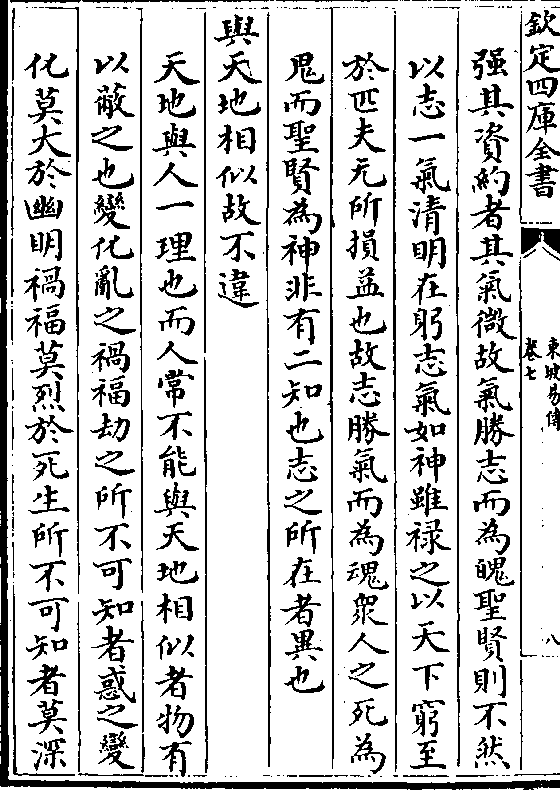 欽定四庫全書
東坡易傳
卷七
八
强其資約者其氣微故氣勝志而為魄聖賢則不然
以志一氣清明在躬志氣如神雖禄之以天下窮至
於匹夫无所損益也故志勝氣而為魂衆人之死為
鬼而聖賢為神非有二知也志之所在者異也
與天地相似故不違
天地與人一理也而人常不能與天地相似者物有
以蔽之也變化亂之禍福劫之所不可知者惑之變
化莫大於幽明禍福莫烈於死生所不可知者莫深